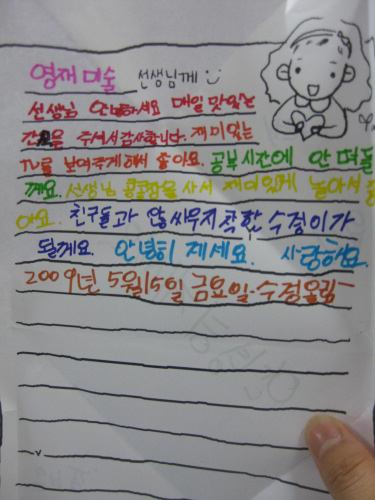 영재 미술 선생님께
선생님 안녕하세요 매일 맛있는
간식을 주셔서 감사합니다. 재미있는
TV를 보여주게해서 좋아요. 공부시간에 안 떠들
께요. 선생님 콩콩을 사서 재미있게 놀아서 좋
아요. 친구들과 않싸우지 착한 수정이가
될께요. 안녕히 계세요. 사랑해요.
2009년 5월15일 금요일-수정올림-